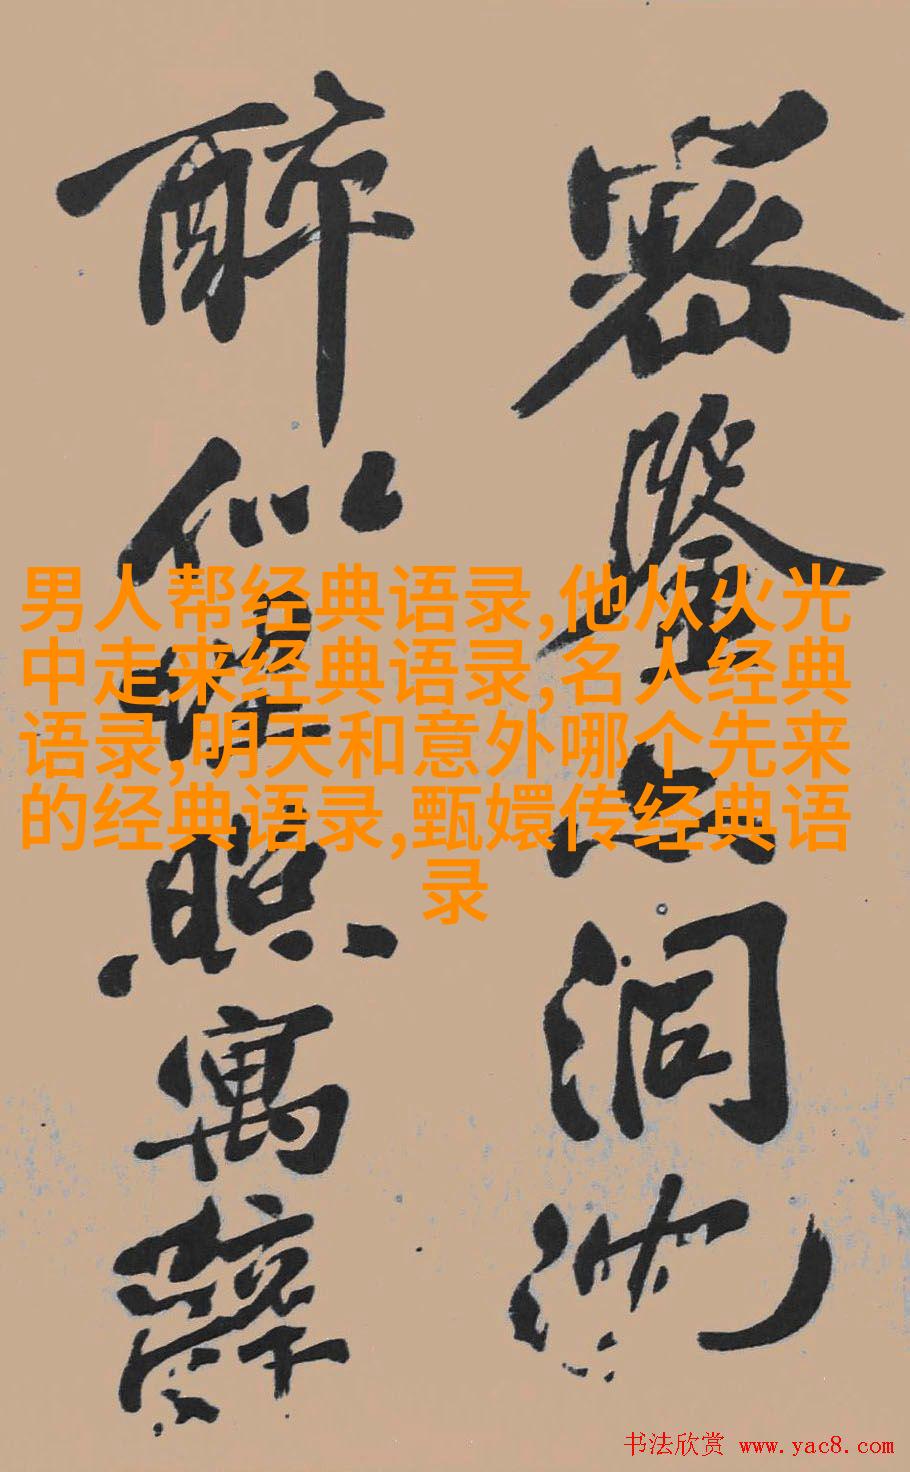 密鑒亦洞沈
醉似埋照寓辭
男人帮经典语录,他从火光
中走来经典语录,名人经典
语录,明天和意外哪个先来
的经典语录,甄嬛传经典语
录
书法欣赏 www.yac8.com